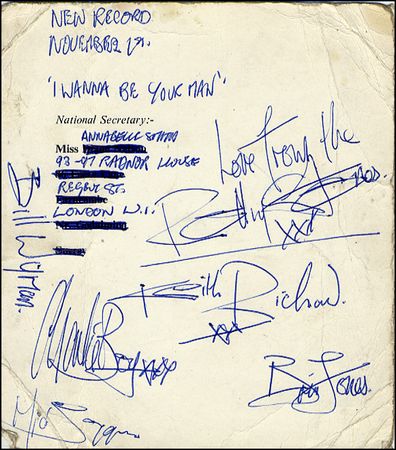 NEW RECORD
NOVEMBER 1st.
'I WANNA BE YOUR MAN'.
National Secretary:-
ANNABELLE SMITH
Miss
93-97 RADNOR HOUSE
REGENT ST.
LONDON W.1.
Love From the
Rolling Stones.
xxx
Bill Wyman.
Keith Richard.
xxx
Charlie Boy xxx
Brian Jones.
Mick Jagger